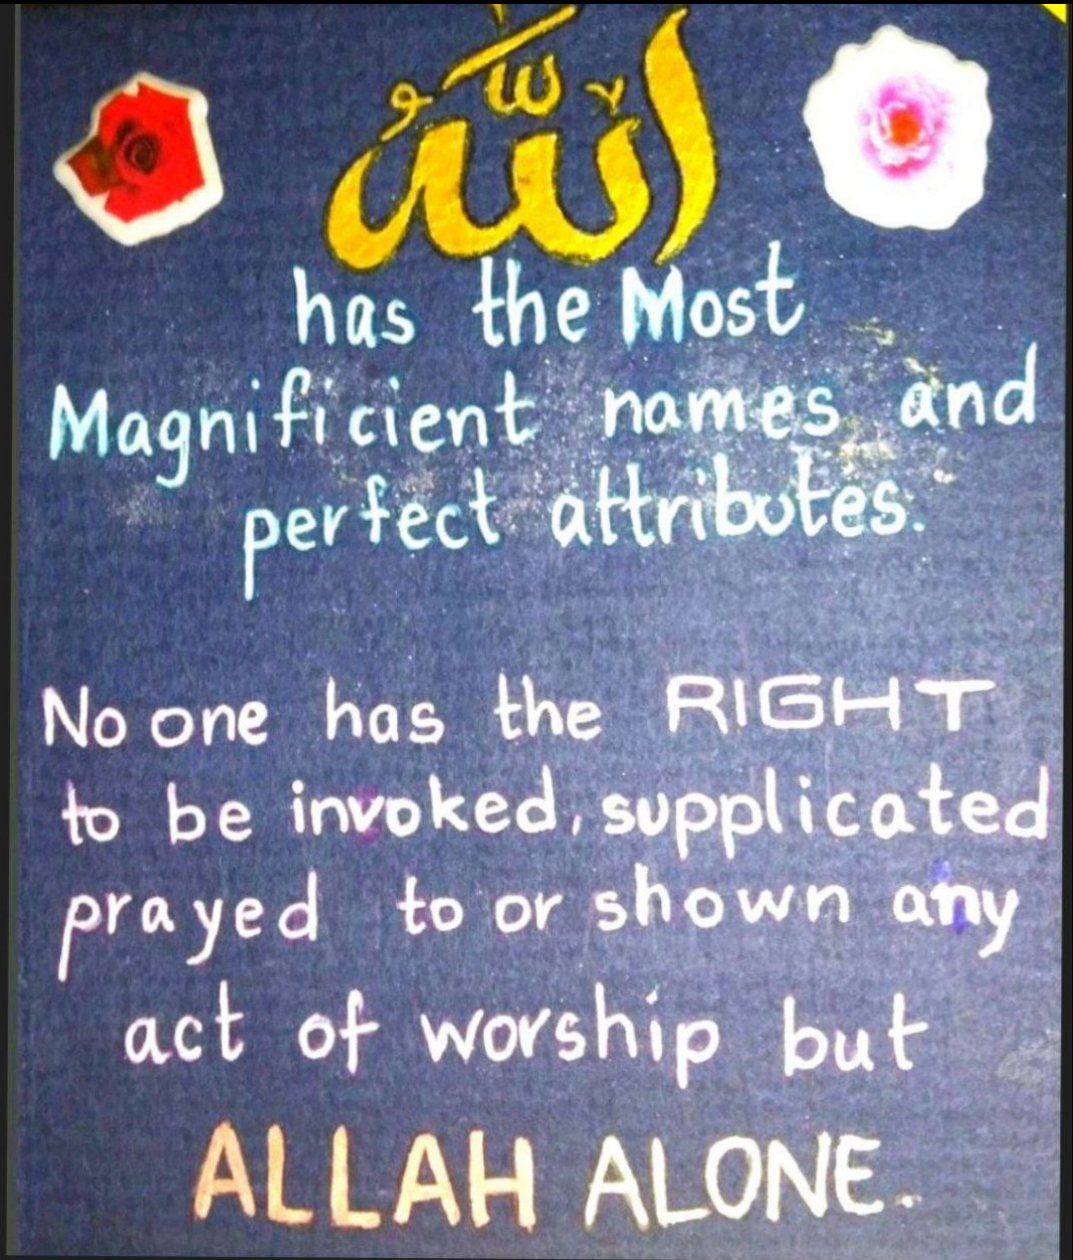 الله
has the Most
Magnificient names and
perfect attributes.
No one has the RIGHT
to be invoked, supplicated
prayed to or shown any
act of worship but
ALLAH ALONE.